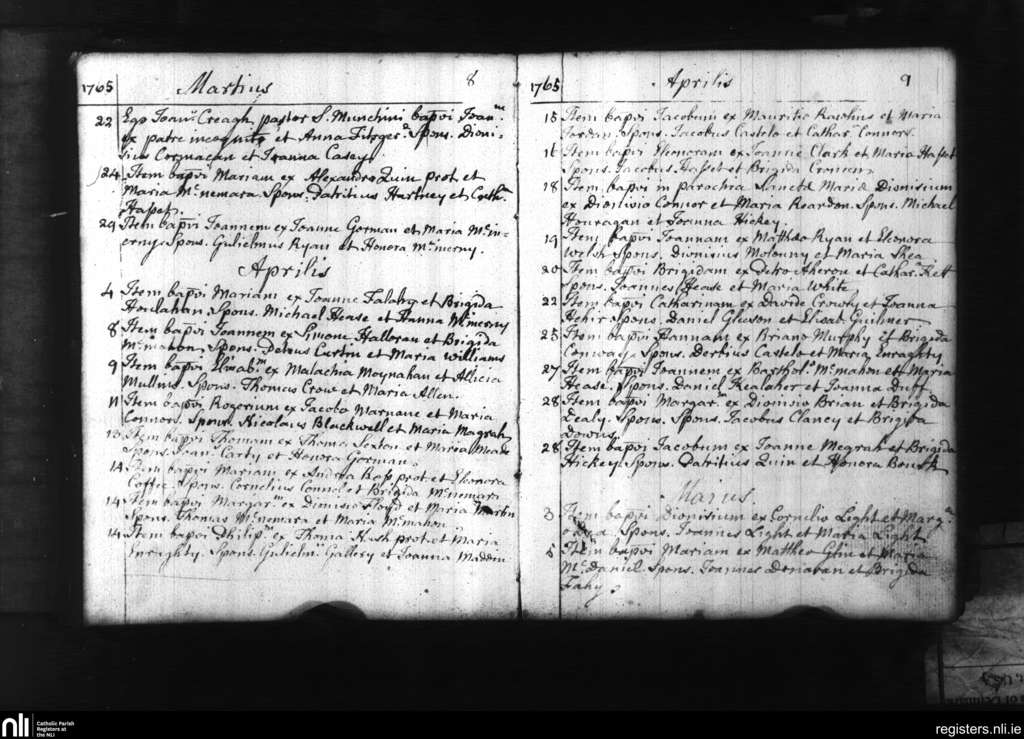 1765 Martius 8
22 Ego Joan: Creagh, pastor S. Munchini bapvi Joanm
ex patre incognito et Anna Fitzgerd Spons. Dioni-
sius Cormacan et Joanna Casey.
24 Item bapvi Mariam ex Alexandro Quin prot et
Maria Mcnemara Spons. Patritius Hartney et Cath:
Hasset.
29 Item bapvi Joannem ex Joanne Gorman et Maria Mcin-
erny Spons. Gulielmus Ryan et Honora Mcinerny.
Aprilis
4 Item bapvi Mariam ex Joanne Falahy et Brigida
Houlahan Spons. Michael Hease et Anna Mcinerny
8 Item bapvi Joannem ex Simone Halloran et Brigida
Mcmahon, Spons. Petrus Curtin et Maria Williams
9 Item bapvi Elizabm ex Malachia Moynahan et Allicia
Mullins. Spons. Thomas Crow et Maria Allen.
11 Item bapvi Rogerium ex Jacobo Marnane et Maria
Connors. Spons. Nicolaus Blackwell et Maria Magrah
Item bapvi Thomam ex Thoma Sexton et Maria Meade
Spons. Joan: Carty et Honora Gorman.
14 Item bapvi Mariam ex Andrea Boss prot et Eleonora
Coffee. Spons. Cornelius Connol et Brigida Mcnemara
14 Item bapvi Margarm ex Dionisio Floyd et Maria Martin
Spons. Thomas Mcnemara et Maria Mcmahon
14 Item bapvi Philipm ex Thoma Hush prot et Maria
Enraghty. Spons. Gulielm: Gallery et Joanna Maddin
1765 Aprilis 9
15 Item bapvi Jacobum ex Mauritio Rawlins et Maria
Jordan. Spons. Jacobus Castelo et Cathar: Connors.
16 Item bapvi Eleonoram ex Joanne Clark et Maria Hasset
Spons. Jacobus Hasset et Brigida Cronien.
18 Item bapvi in parochia Sanctæ Mariæ Dionisium
ex Dionisio Connor et Maria Reardon. Spons. Michael
Houragan et Joanna Hickey.
19 Item bapvi Joannam ex Mattheo Ryan et Eleonora
Welsh Spons. Dionisius Molouny et Maria Shea
20 Item bapvi Brigidam ex Petro Aheron et Cathar: Kett
Spons. Joannes Hease et Maria White
22 Item bapvi Catharinam ex Davide Crowly et Joanna
Hehir Spons. Daniel Gleeson et Elisab: Guilmer
25 Item bapvi Hannam ex Briano Murphy et Brigida
Conway. Spons. Dertius Castelo et Maria Enraghty
27 Item bapvi Joannem ex Barthol: Mcmahon et Maria
Hease. Spons. Daniel Kealaher et Joanna Duff
28 Item bapvi Margarm ex Dionisio Brian et Brigida
Lealy. Spons. Spons. Jacobus Clancy et Brigida
Downs
28 Item bapvi Jacobum ex Joanne Megrah et Brigida
Hickey. Spons. Patritius Quin et Honora Bourk
Maius
3 Item bapvi Dionisium ex Cornelio Light et Margm
Spons. Joannes Light et Maria Light
5 Item bapvi Mariam ex Mattheo et Maria
Mcdaniel. Spons. Joannes Donavan et Brigida
Fahy.
nli Catholic Parish
Registers at
the NLI
registers.nli.ie